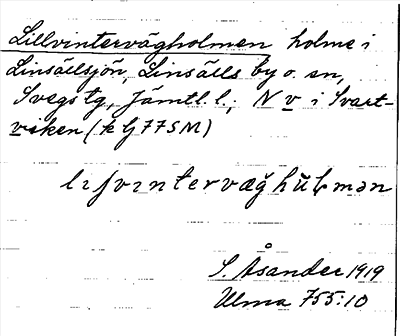 Lillvintervägholmen, holme i
Linsällsjön, Linsälls by o. sn,
Svegs tg, Jämtl. l.; N v i Svart-
viken (k lj 77 S M)
S. Åsander 1919
Ulma 755:10